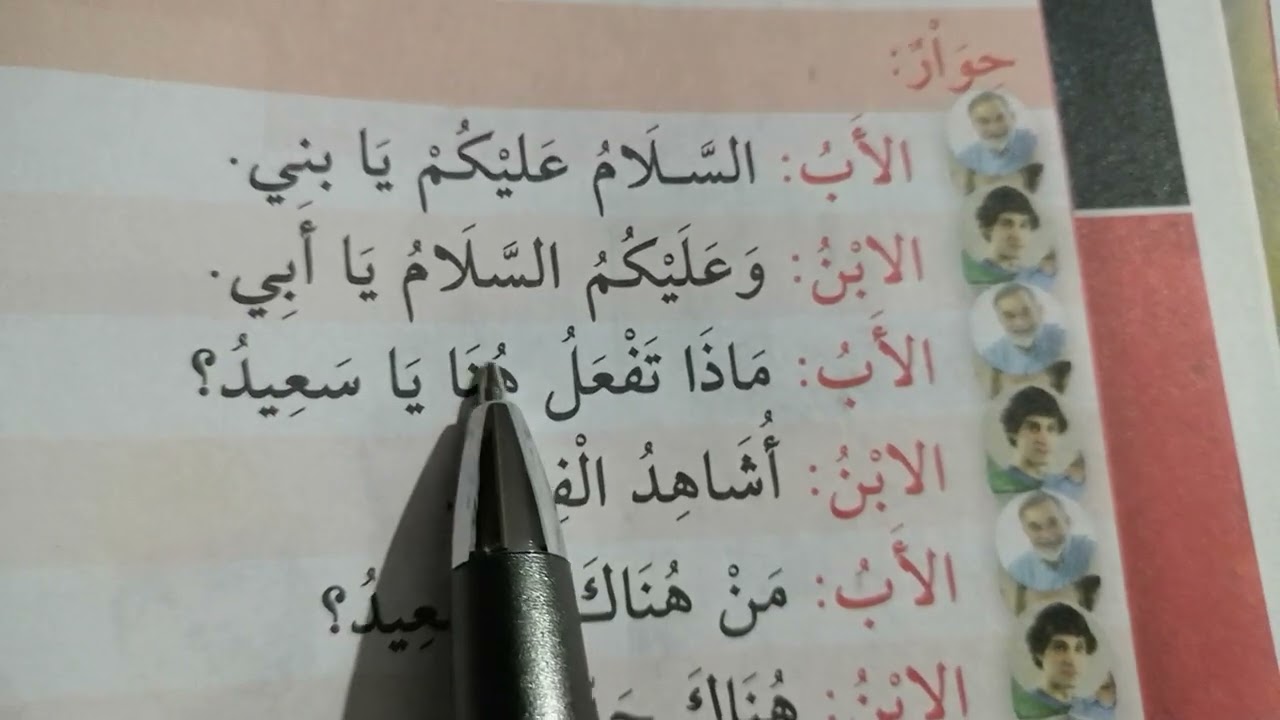 حِوَاْرٌ:
الأَبُ: السَّلَامُ عَليْكُمْ يَا بنِي.
الابْنُ: وَعَلَيْكُمُ السَّلَامُ يَا أَبِي.
الأَبُ: مَاذَا تَفْعَلُ هُنَا يَا سَعِيدُ؟
الابْنُ: أُشَاهِدُ
الأَبُ: مَنْ هُنَاكَ
الابْنُ: هُنَاكَ